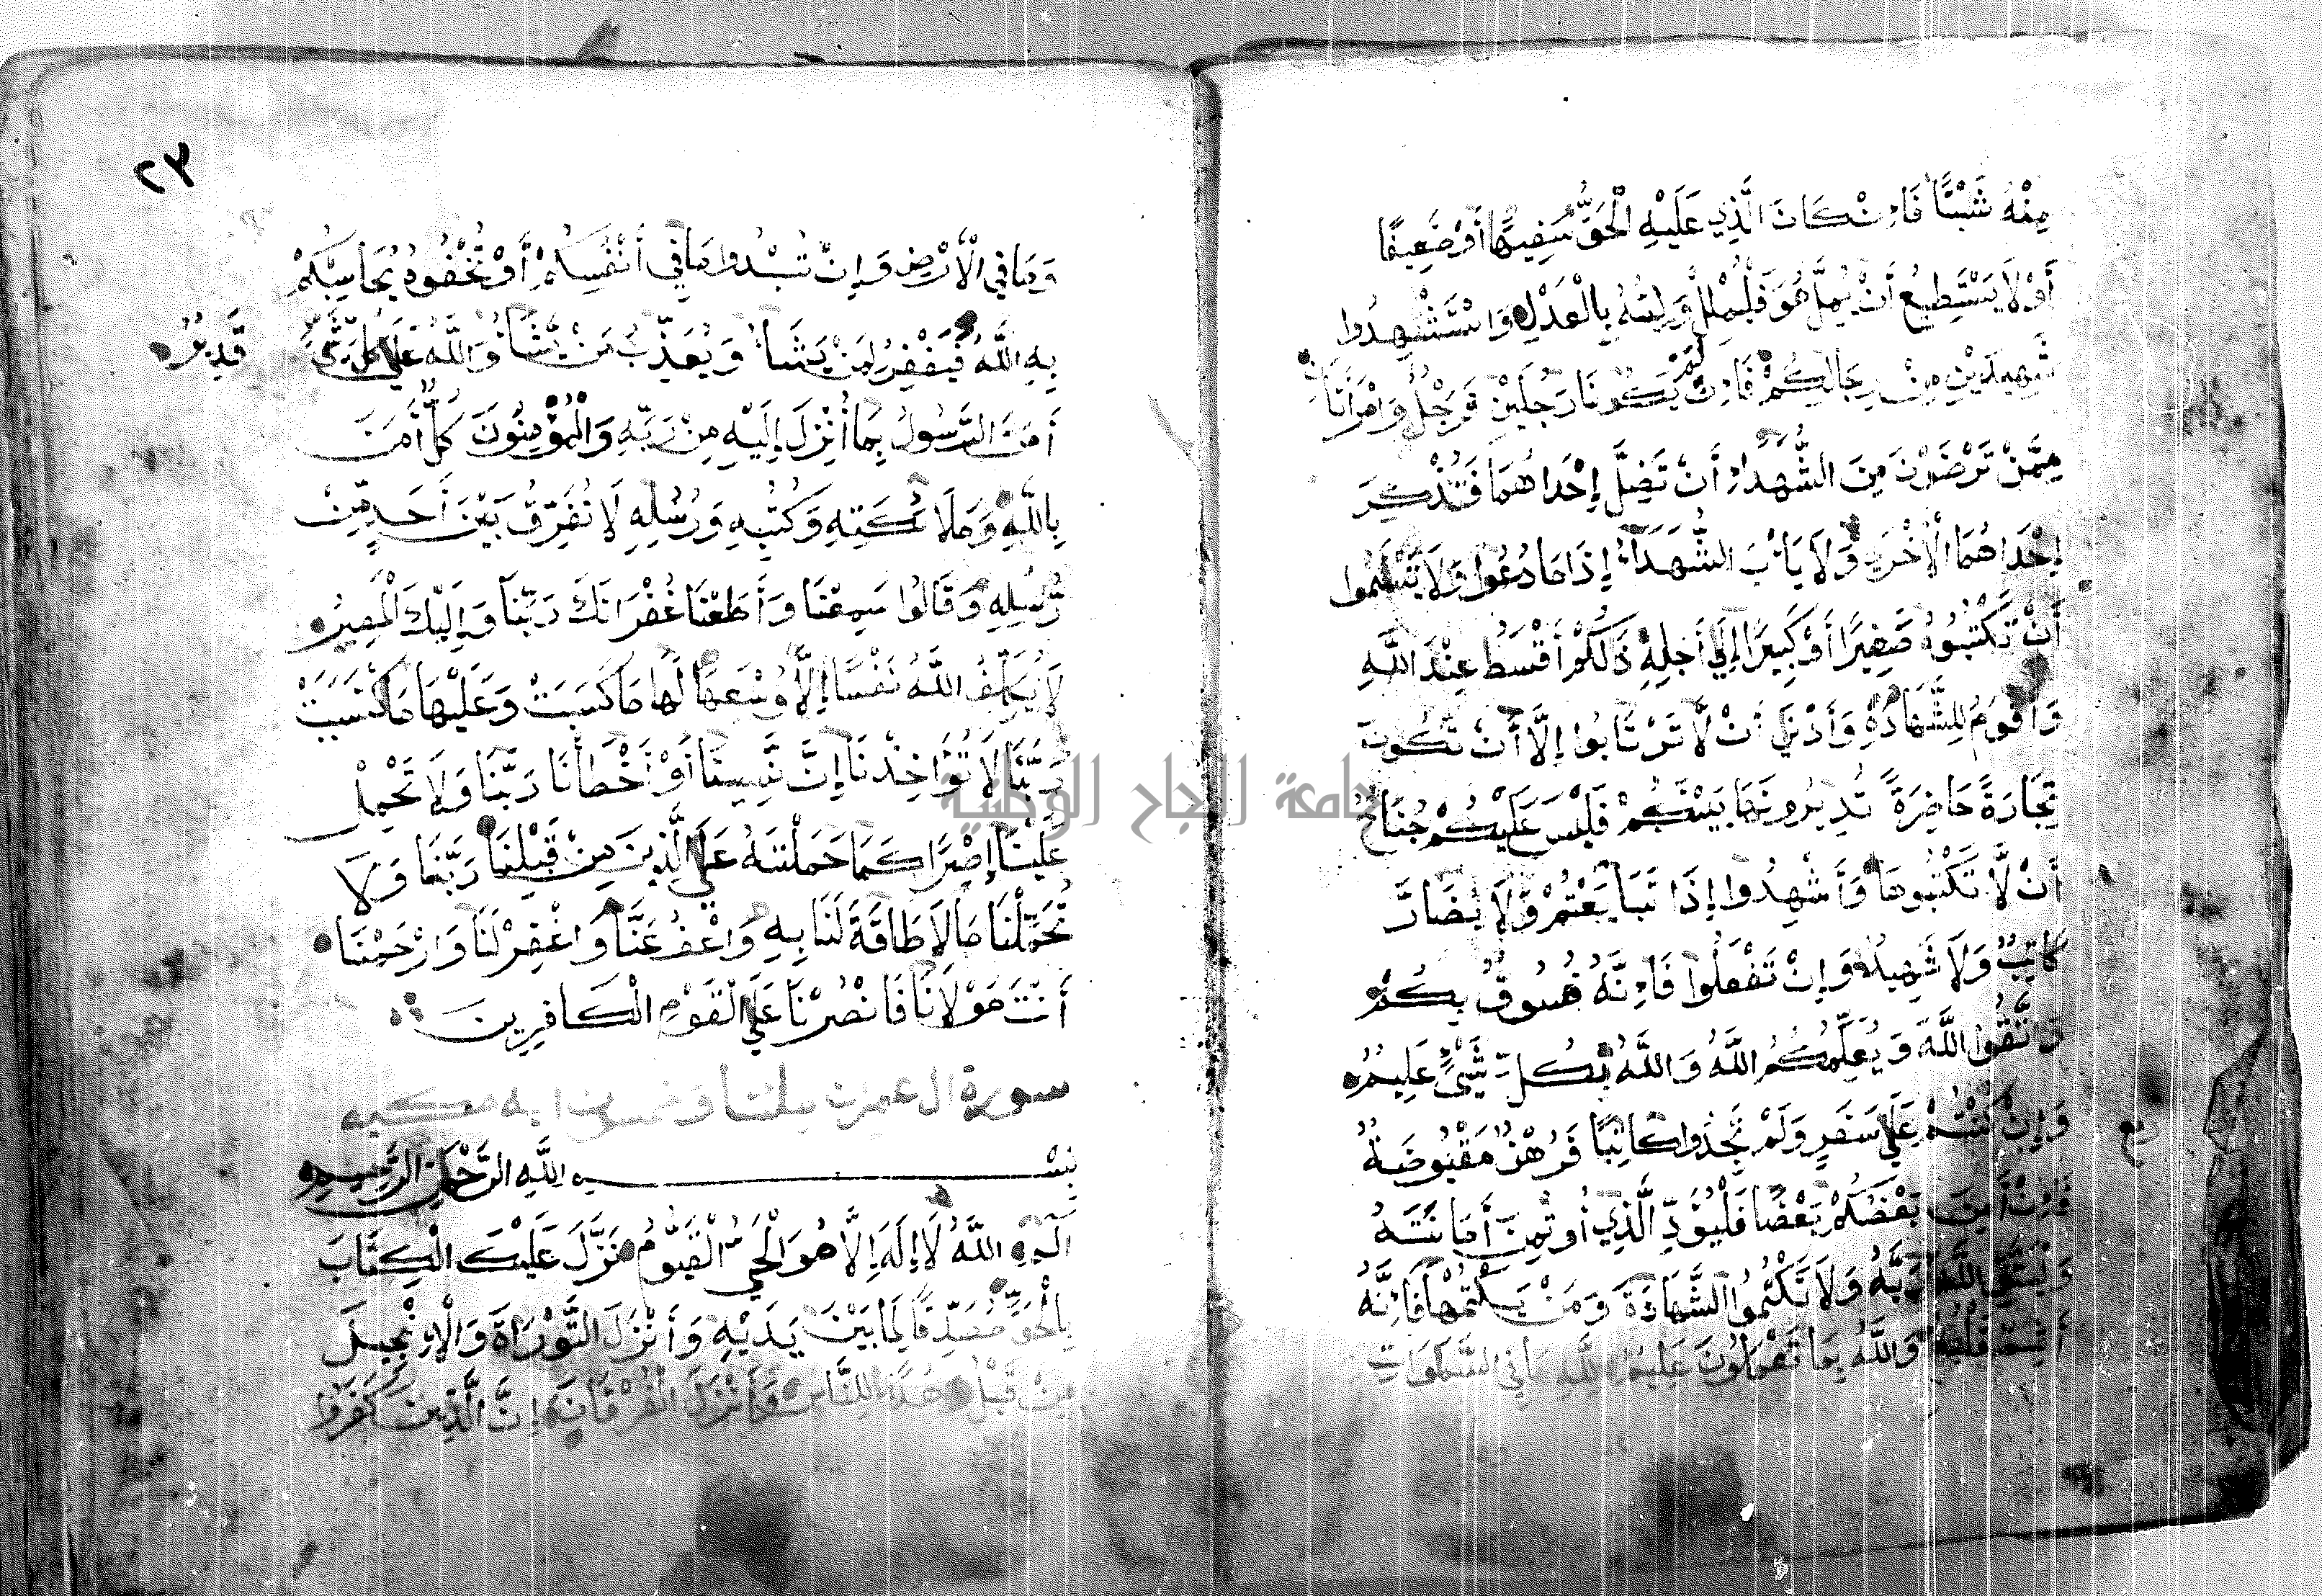 مِنْهُ شَيْئًا فَإِنْ كَانَ الَّذِي عَلَيْهِ الْحَقُّ سَفِيهًا أَوْ ضَعِيفًا
أَوْ لَا يَسْتَطِيعُ أَنْ يُمِلَّ هُوَ فَلْيُمْلِلْ وَلِيُّهُ بِالْعَدْلِ وَاسْتَشْهِدُوا
شَهِيدَيْنِ مِنْ رِجَالِكُمْ فَإِنْ لَّمْ يَكُونَا رَجُلَيْنِ فَرَجُلٌ وَامْرَأَتَانِ
مِمَّنْ تَرْضَوْنَ مِنَ الشُّهَدَاءِ أَنْ تَضِلَّ إِحْدَاهُمَا فَتُذَكِّرَ
إِحْدَاهُمَا الْأُخْرَى وَلَا يَأْبَ الشُّهَدَاءُ إِذَا مَا دُعُوا وَلَا تَسْئَمُوا
أَنْ تَكْتُبُوهُ صَغِيرًا أَوْ كَبِيرًا إِلَى أَجَلِهِ ذَلِكُمْ أَقْسَطُ عِنْدَ اللَّهِ
وَأَقْوَمُ لِلشَّهَادَةِ وَأَدْنَى أَنْ لَّا تَرْتَابُوا إِلَّا أَنْ تَكُونَ
تِجَارَةً حَاضِرَةً تُدِيرُونَهَا بَيْنَكُمْ فَلَيْسَ عَلَيْكُمْ جُنَاحٌ
أَنْ لَّا تَكْتُبُوهَا وَأَشْهِدُوا إِذَا تَبَايَعْتُمْ وَلَا يُضَارَّ
كَاتِبٌ وَلَا شَهِيدٌ وَإِنْ تَفْعَلُوا فَإِنَّهُ فُسُوقٌ بِكُمْ
وَاتَّقُوا اللَّهَ وَيُعَلِّمُكُمُ اللَّهُ وَاللَّهُ بِكُلِّ شَيْءٍ عَلِيمٌ
وَإِنْ كُنْتُمْ عَلَى سَفَرٍ وَلَمْ تَجِدُوا كَاتِبًا فَرُهْنٌ مَقْبُوضَةٌ
فَإِنْ أَمِنَ بَعْضُكُمْ بَعْضًا فَلْيُؤَدِّ الَّذِي أُوتُمِنَ أَمَانَتَهُ
وَلْيَتَّقِ اللَّهَ رَبَّهُ وَلَا تَكْتُمُوا الشَّهَادَةَ وَمَنْ يَكْتُمْهَا فَإِنَّهُ
أَثِمٌ قَلْبُهُ وَاللَّهُ بِمَا تَعْمَلُونَ عَلِيمٌ لِلَّهِ مَا فِي السَّمَوَاتِ
ربع
٢٣
وَمَا فِي الْأَرْضِ وَإِنْ تُبْدُوا مَا فِي أَنْفُسِكُمْ أَوْ تُخْفُوهُ يُحَاسِبْكُمْ
بِهِ اللَّهُ فَيَغْفِرُ لِمَنْ يَشَاءُ وَيُعَذِّبُ مَنْ يَّشَاءُ وَاللَّهُ عَلَى كُلِّ شَيْءٍ قَدِيرٌ
أَمَنَ الرَّسُولُ بِمَا أُنْزِلَ إِلَيْهِ مِنْ رَبِّهِ وَالْمُؤْمِنُونَ كُلٌّ أَمَنَ
بِاللَّهِ وَمَلَائِكَتِهِ وَكُتُبِهِ وَرُسُلِهِ لَا نُفَرِّقُ بَيْنَ أَحَدٍ مِّنْ
رُّسُلِهِ وَقَالُوا سَمِعْنَا وَأَطَعْنَا غُفْرَانَكَ رَبَّنَا وَإِلَيْكَ الْمَصِيرُ
لَا يُكَلِّفُ اللَّهُ نَفْسًا إِلَّا وُسْعَهَا لَهَا مَا كَسَبَتْ وَعَلَيْهَا مَا كْتَسَبَتْ
رَبَّنَا لَا تُؤَاخِذْنَا إِنْ نَّسِينَا أَوْ أَخْطَأْنَا رَبَّنَا وَلَا تَحْمِلْ
عَلَيْنَا إِصْرًا كَمَا حَمَلْتَهُ عَلَى الَّذِينَ مِنْ قَبْلِنَا رَبَّنَا وَلَا
تُحَمِّلْنَا مَا لَا طَاقَةَ لَنَا بِهِ وَاعْفُ عَنَّا وَاغْفِرْ لَنَا وَارْحَمْنَا
أَنْتَ مَوْلَانَا فَانْصُرْنَا عَلَى الْقَوْمِ الْكَافِرِينَ
سورة ال عمرن
بِسْمِ اللَّهِ الرَّحْمَنِ الرَّحِيمِ
الم اللَّهُ لَا إِلَهَ إِلَّا هُوَ الْحَيُّ الْقَيُّومُ نَزَّلَ عَلَيْكَ الْكِتَابَ
بِالْحَقِّ مُصَدِّقًا لِمَا بَيْنَ يَدَيْهِ وَأَنْزَلَ التَّوْرَاةَ وَالْإِنْجِيلَ
مِنْ قَبْلُ هُدًى لِلنَّاسِ وَأَنْزَلَ الْفُرْقَانَ إِنَّ الَّذِينَ كَفَرُوا
جامعة النجاح الوطنية